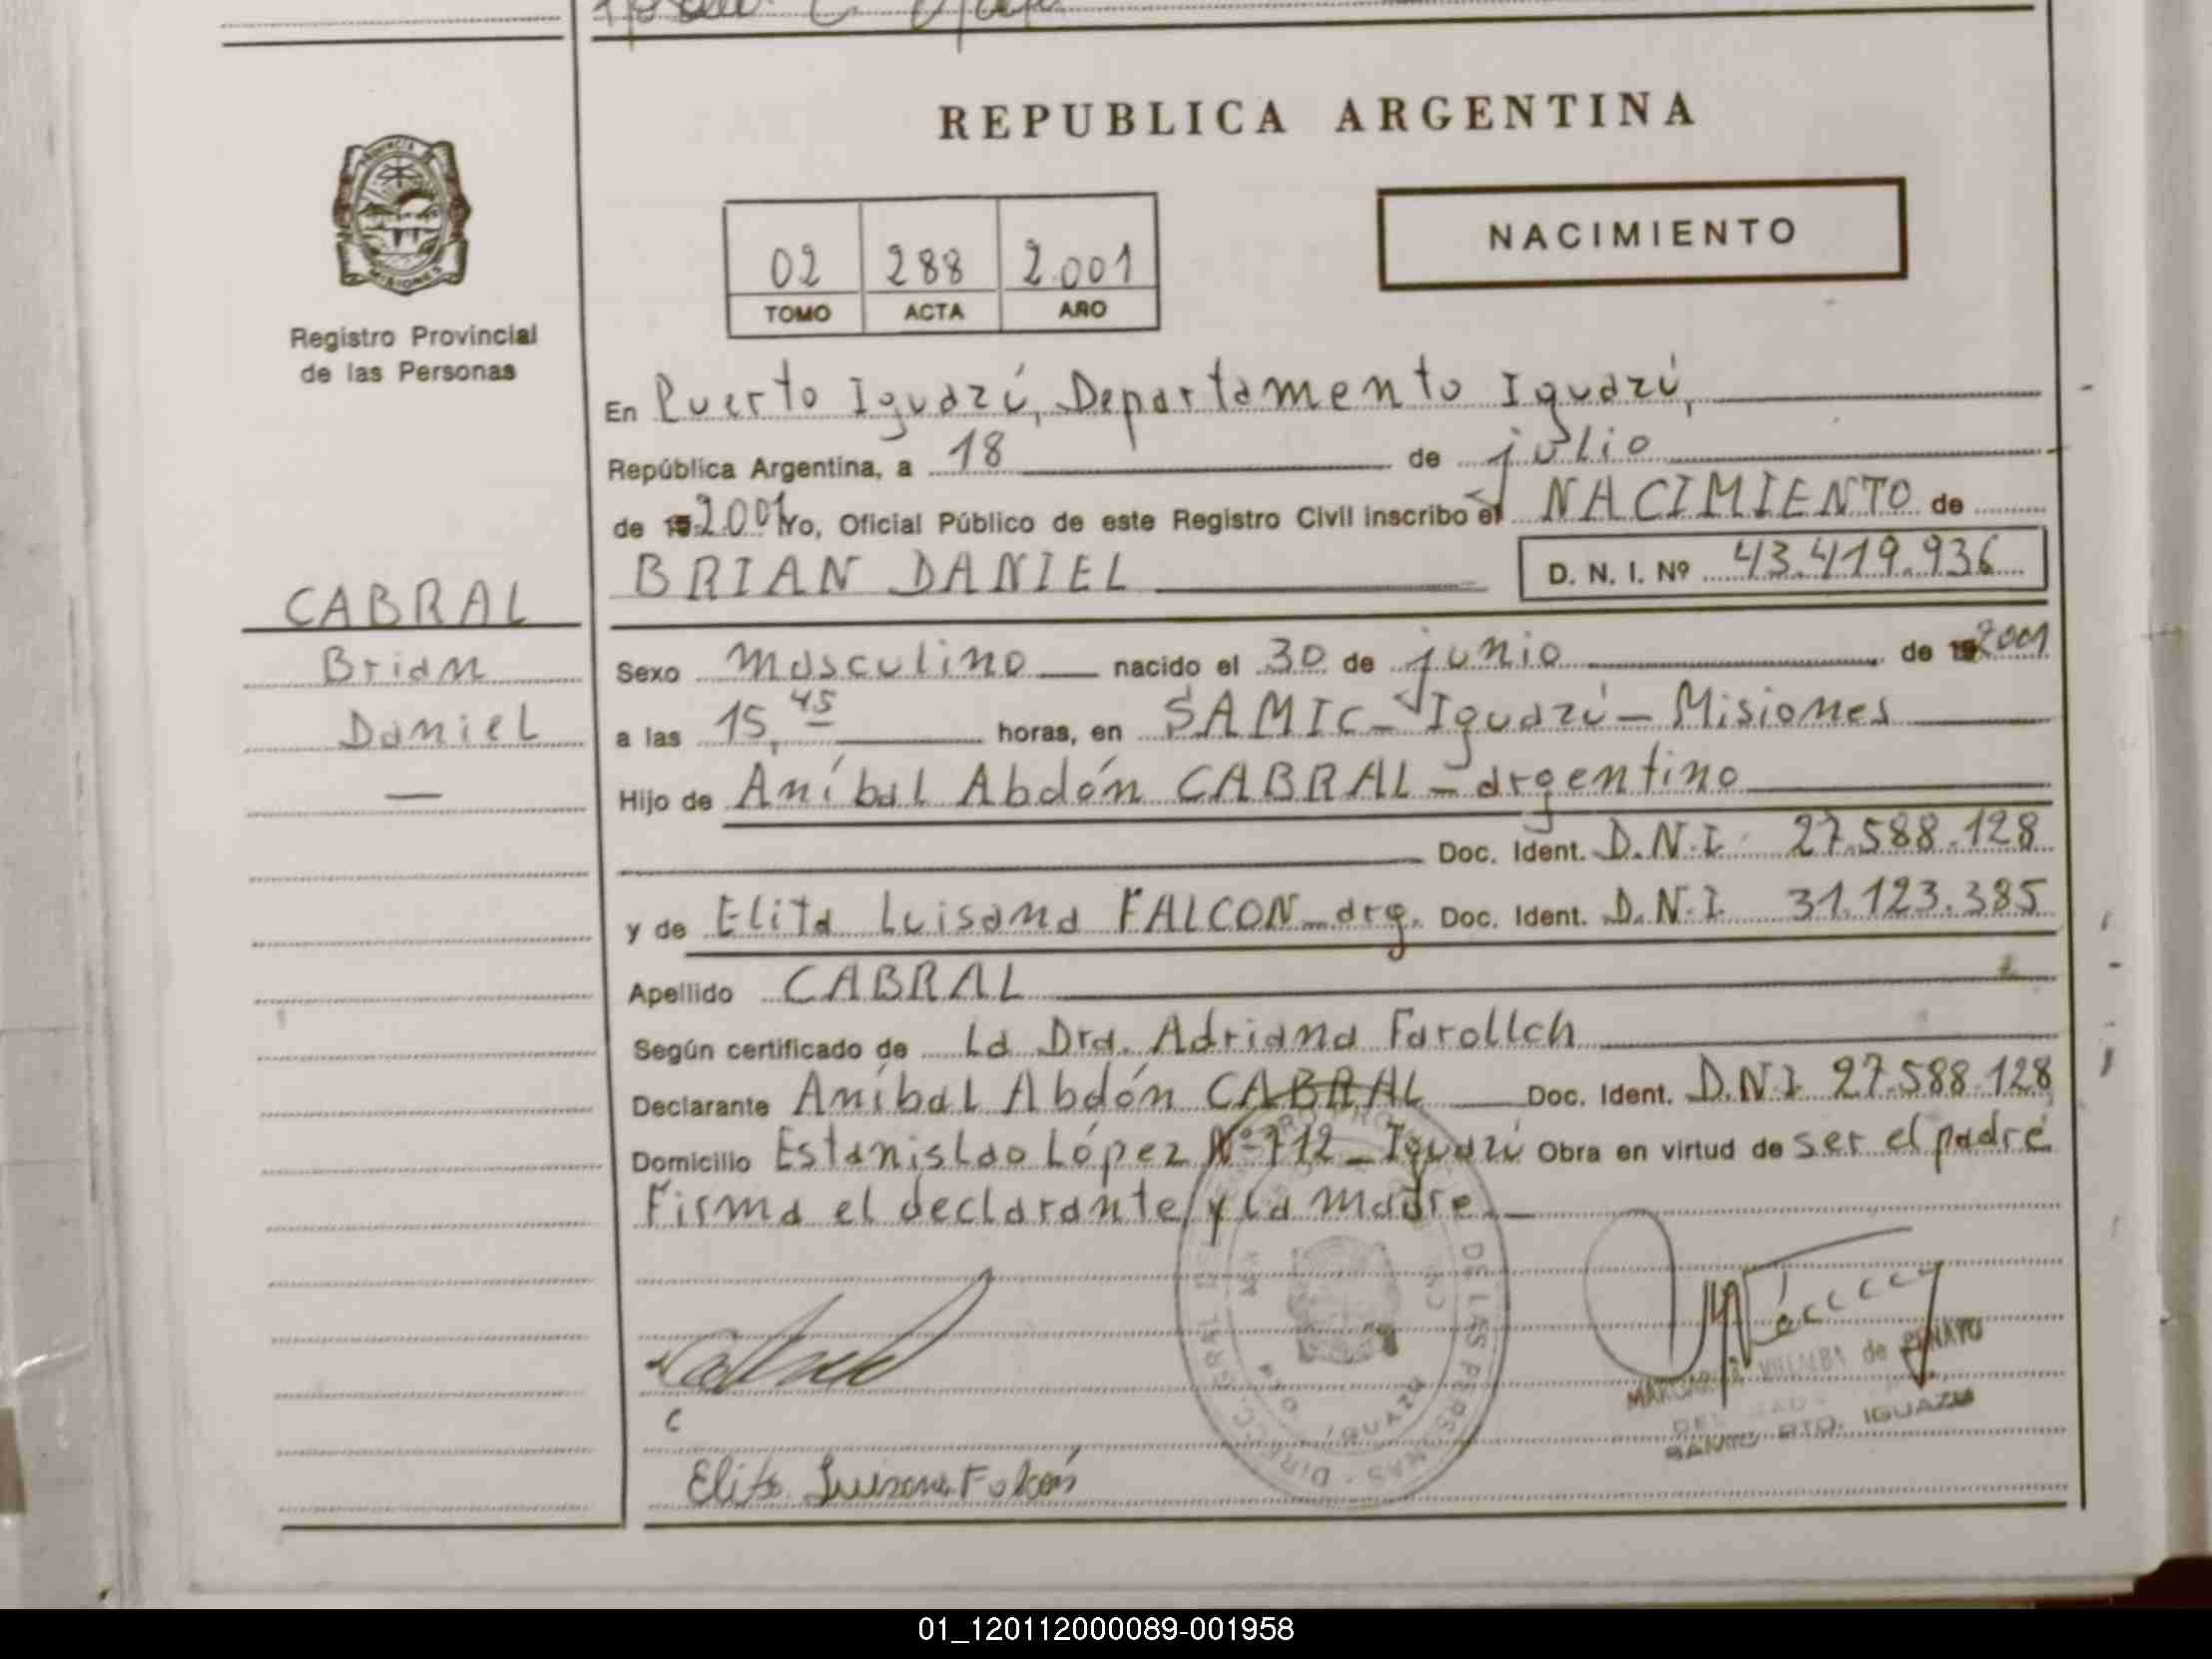 REPUBLICA ARGENTINA
PROVINCIA DE
MISIONES
Registro Provincial
de las Personas
NACIMIENTO
02 288 2.001
TOMO ACTA AÑO
En Puerto Iguazú, Departamento Iguazú,
República Argentina, a 18 de julio
de 19 2.001 Yo, Oficial Público de este Registro Civil inscribo el NACIMIENTO de
BRIAN DANIEL D. N. I. Nº 43.419.936
CABRAL
Brian
Daniel
Sexo masculino nacido el 30 de junio de 19 2001
a las 15,45 horas, en SAMIC - Iguazú - Misiones
Hijo de Aníbal Abdón CABRAL - argentino
Doc. Ident. D.N.I. 27.588.128
y de Elita Luisana FALCON - arg. Doc. Ident. D.N.I. 31.123.385
Apellido CABRAL
Según certificado de La Dra. Adriana Farollch
Declarante Aníbal Abdón CABRAL Doc. Ident. D.N.I. 27.588.128
Domicilio Estanislao López Nº 712 - Iguazú Obra en virtud de ser el padre
Firma el declarante y la madre.
DE LAS PERSONAS - DIRECC
IGUAZU
de
PTO. IGUAZU
Elita Luisana Falcón
01_120112000089-001958